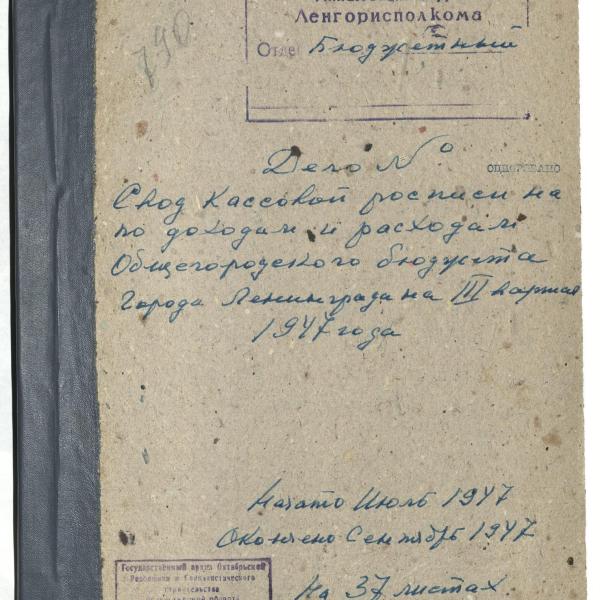 Ленгорисполкома
Отдел Бюджетный
790
Дело №
ОЦИФРОВАНО
Свод кассовой росписи на
по доходам и расходам
Общегородского бюджета
Города Ленинграда на III квартал
1947 года
Начато Июль 1947
Окончено Сентябрь 1947
На 37 листах
Государственный архив Октябрьской
Революции и Социалистического
строительства